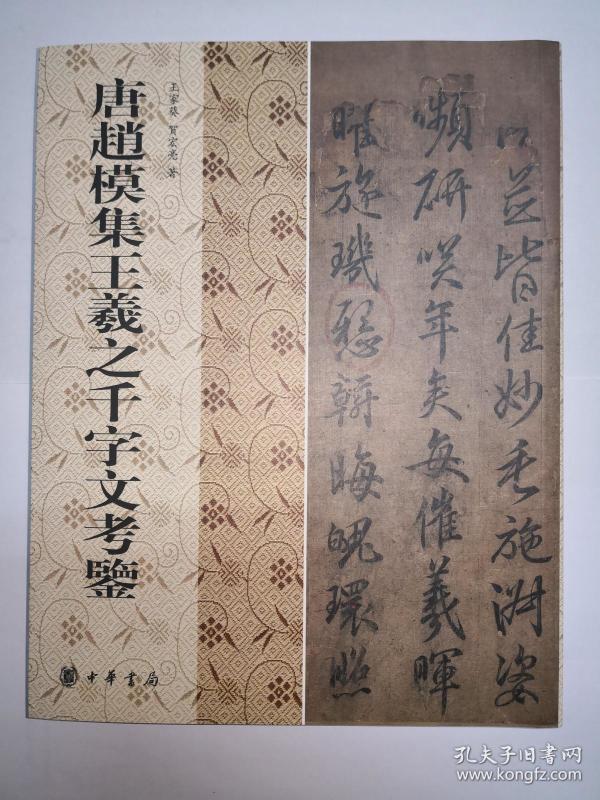 唐趙模集王羲之千字文考鑒
王家葵 賀宏亮 著
中華書局
並皆佳妙毛施淑姿
嚬研咲年矢每催羲暉
曜旋璣懸斡晦魄環照
孔夫子旧书网
www.kongfz.com